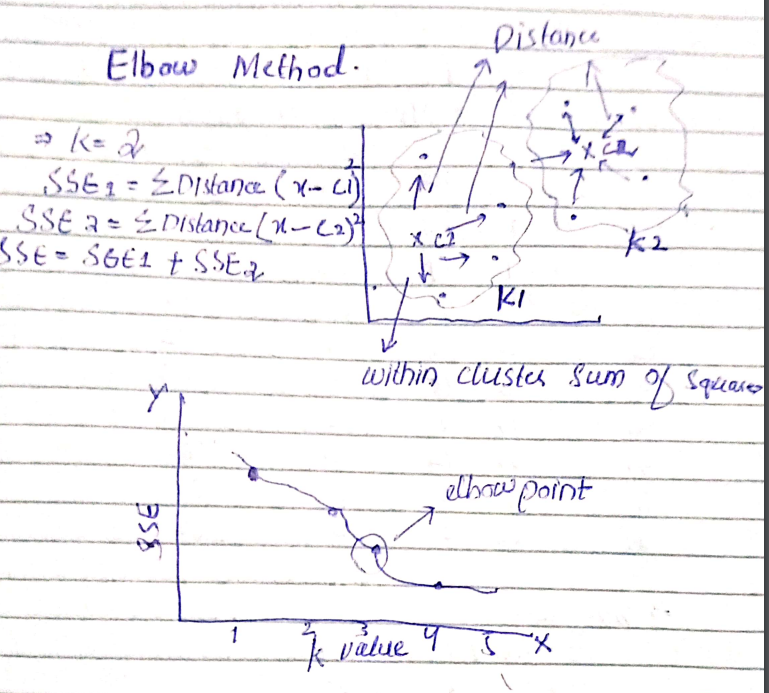 Distance
Elbow Method.
⇒ K = 2
SSE1 = Σ Distance (x - C1)²
SSE2 = Σ Distance (x - C2)²
SSE = SSE1 + SSE2
x C2
x C1
K2
K1
within cluster sum of squares
Y
elbow point
SSE
1 2 3 4 5 X
k value